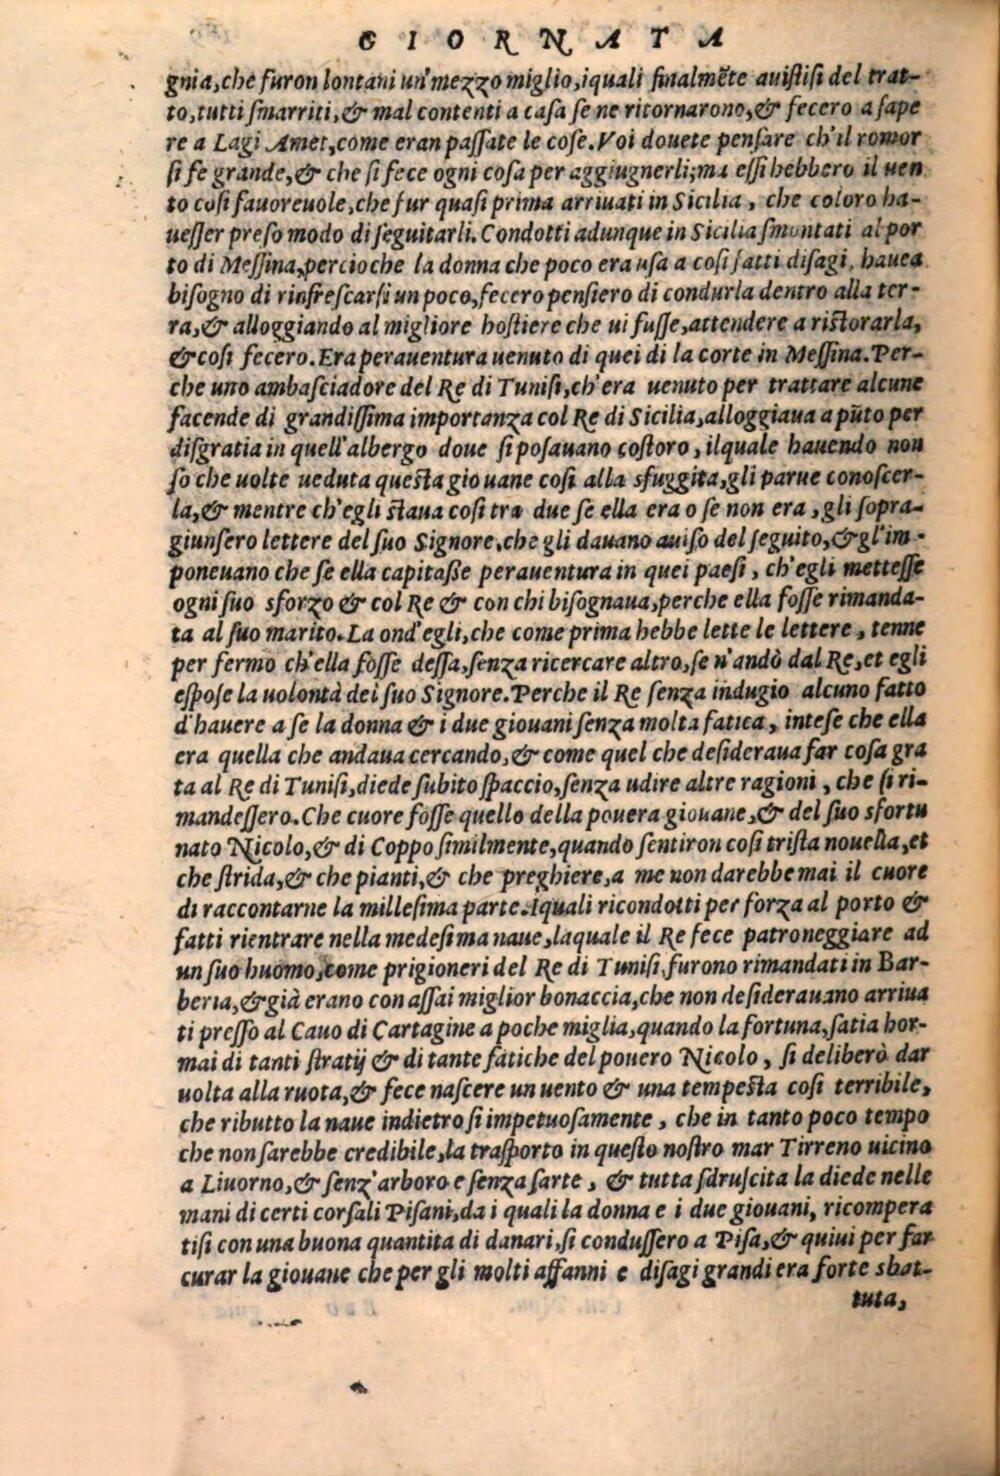 GIORNATA
gnia,che furon lontani un'mezzo miglio,iquali finalmẽte auistisi del trat-
to,tutti smarriti,& mal contenti a casa se ne ritornarono,& fecero a sape
re a Lagi Amet,come eran passate le cose.Voi douete pensare ch'il romor
si fe grande,& che si fece ogni cosa per aggiugnerli;ma essi hebbero il uen
to cosi fauoreuole,che fur quasi prima arriuati in Sicilia, che coloro ha-
uesser preso modo di seguitarli.Condotti adunque in Sicilia smontati al por
to di Messina,percioche la donna che poco era usa a cosi fatti disagi, hauea
bisogno di rinfrescarsi un poco,fecero pensiero di condurla dentro alla ter-
ra,& alloggiando al migliore hostiere che ui fusse,attendere a ristorarla,
& cosi fecero.Era perauentura uenuto di quei di la corte in Messina.Per-
che uno ambasciadore del Re di Tunisi,ch'era uenuto per trattare alcune
facende di grandissima importanza col Re di Sicilia,alloggiaua a pũto per
disgratia in quell'albergo doue si posauano costoro, ilquale hauendo non
so che uolte ueduta questa giouane cosi alla sfuggita,gli parue conoscer-
la,& mentre ch'egli staua cosi tra due se ella era o se non era, gli sopra-
giunsero lettere del suo Signore,che gli dauano auiso del seguito,& gl'im-
poneuano che se ella capitasse perauentura in quei paesi, ch'egli mettesse
ogni suo sforzo & col Re & con chi bisognaua,perche ella fosse rimanda-
ta al suo marito.La ond'egli,che come prima hebbe lette le lettere, tenne
per fermo ch'ella fosse dessa,senza ricercare altro,se n'andò dal Re,et egli
espose la uolontà del suo Signore.Perche il Re senza indugio alcuno fatto
d'hauere a se la donna & i due giouani senza molta fatica, intese che ella
era quella che andaua cercando,& come quel che desideraua far cosa gra
ta al Re di Tunisi,diede subito spaccio,senza udire altre ragioni, che si ri-
mandessero.Che cuore fosse quello della pouera giouane,& del suo sfortu
nato Nicolo,& di Coppo similmente,quando sentiron cosi trista nouella,et
che strida,& che pianti,& che preghiere,a me non darebbe mai il cuore
di raccontarne la millesima parte.Iquali ricondotti per forza al porto &
fatti rientrare nella medesima naue,laquale il Re fece patroneggiare ad
un suo huomo,come prigioneri del Re di Tunisi,furono rimandati in Bar-
beria,& già erano con assai miglior bonaccia,che non desiderauano arriua
ti presso al Cauo di Cartagine a poche miglia,quando la fortuna,satia hor-
mai di tanti stratij & di tante fatiche del pouero Nicolo, si deliberò dar
uolta alla ruota,& fece nascere un uento & una tempesta cosi terribile,
che ributto la naue indietro si impetuosamente, che in tanto poco tempo
che non sarebbe credibile,la trasporto in questo nostro mar Tirreno uicino
a Liuorno,& senz'arboro e senza sarte, & tutta sdruscita la diede nelle
mani di certi corsali Pisani,da i quali la donna e i due giouani, ricompera
tisi con una buona quantita di danari,si condussero a Pisa,& quiui per far
curar la giouane che per gli molti affanni e disagi grandi era forte sbat-
tuta,